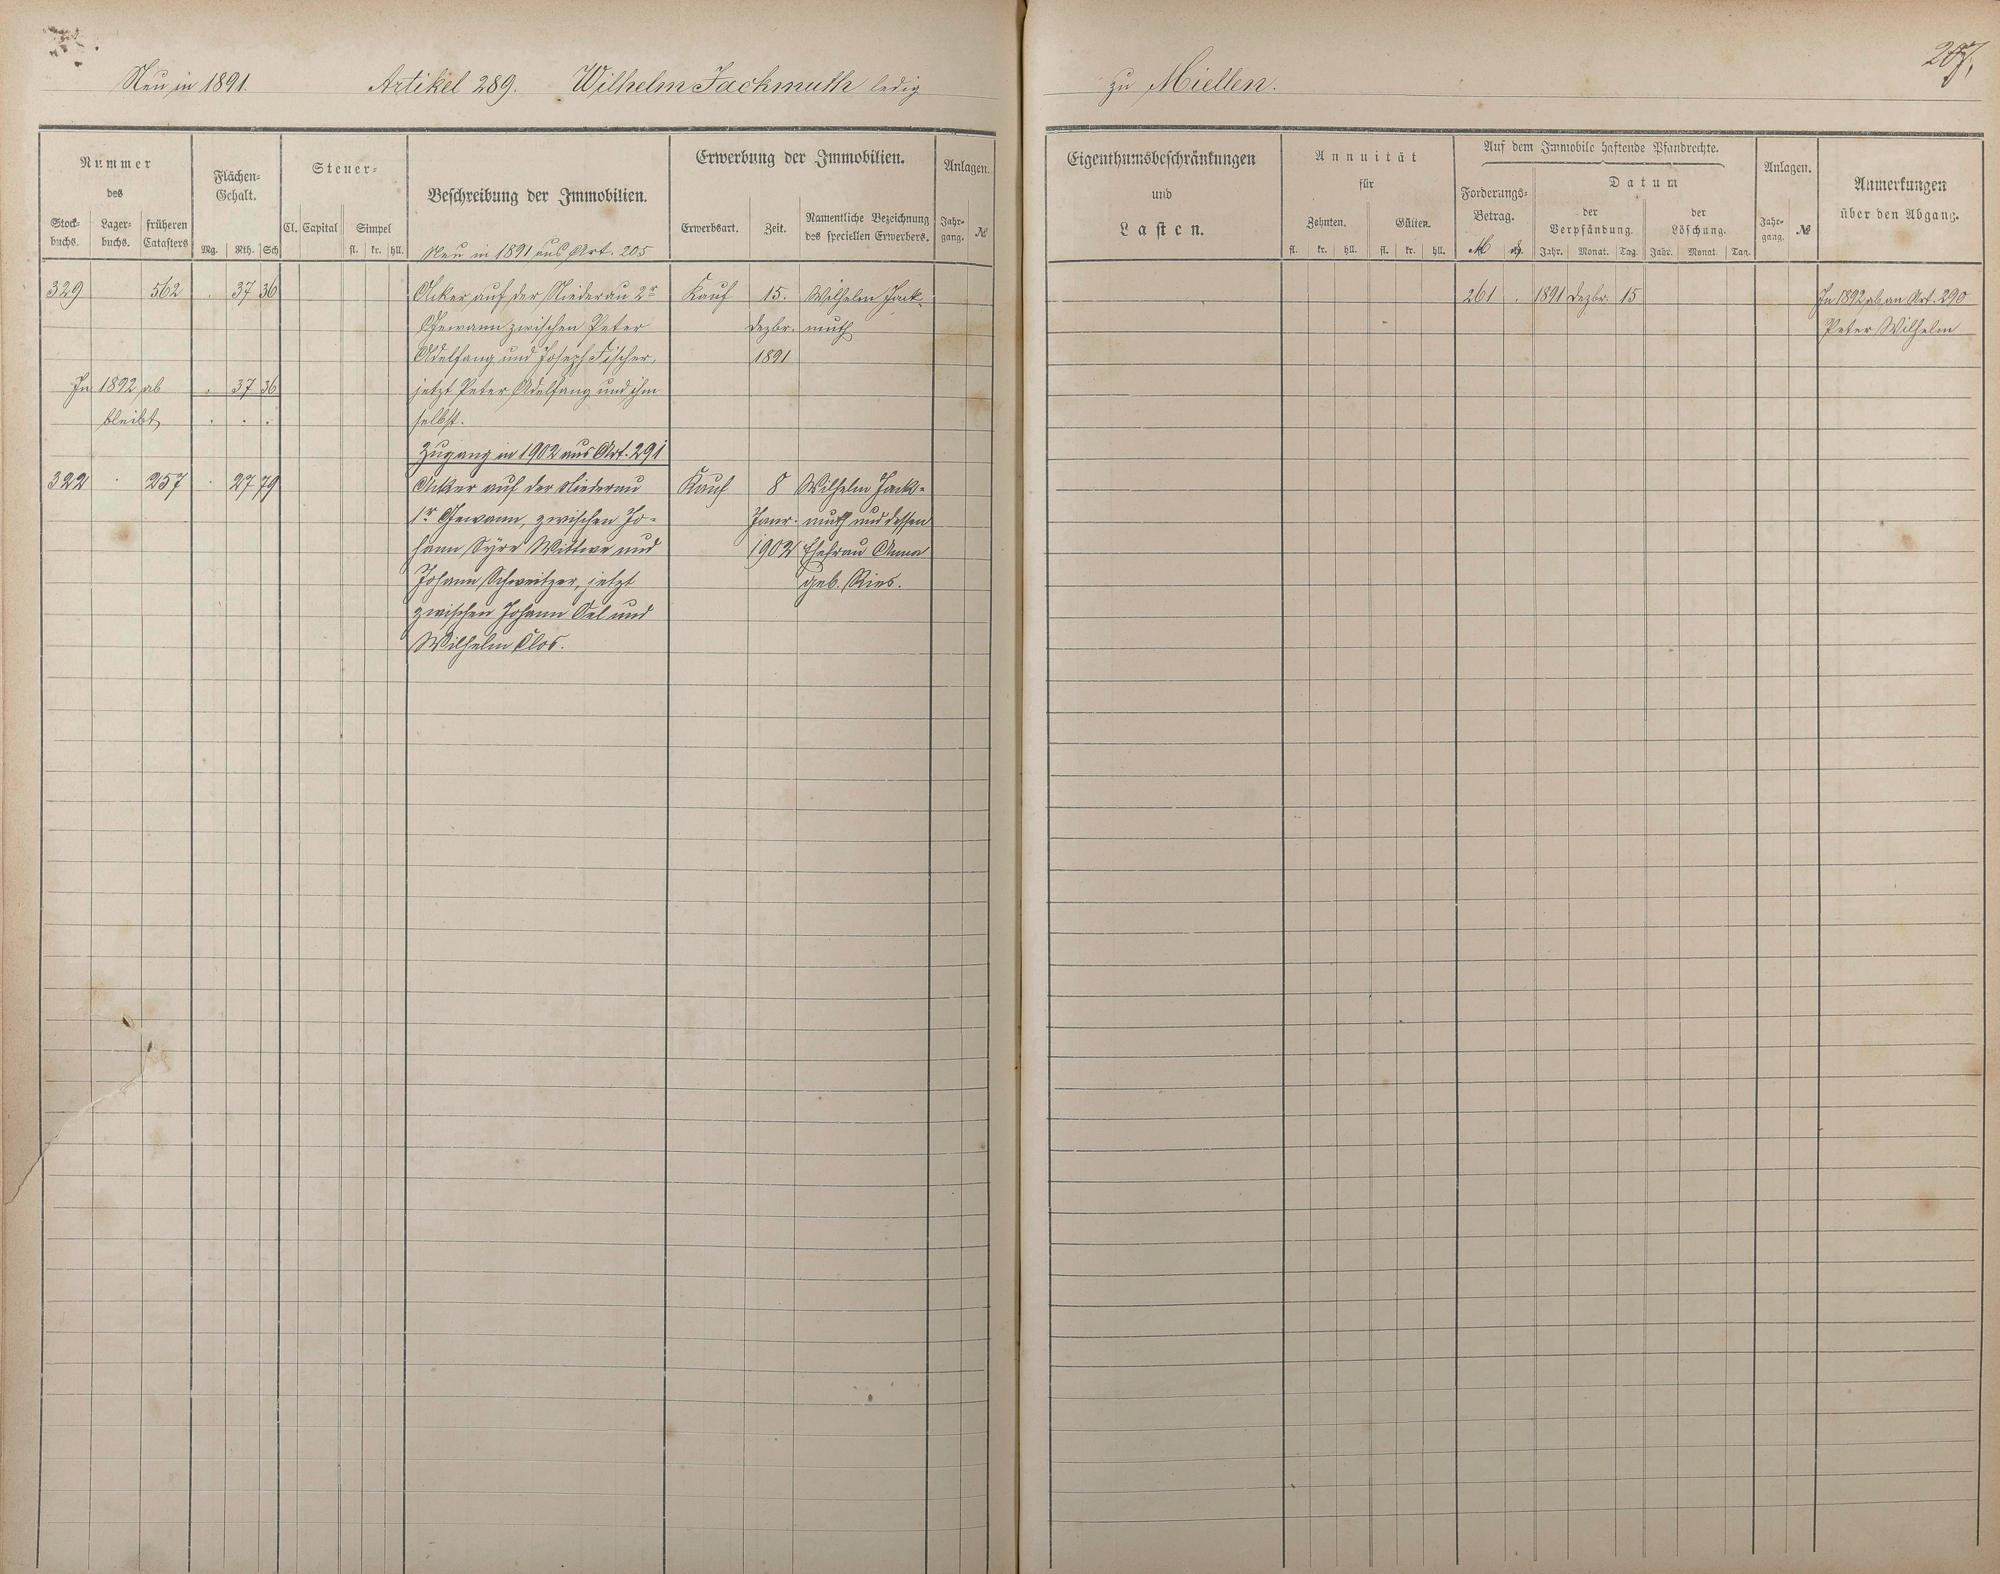 Neu in 1891. Artikel 289. Wilhelm Jackmuth ledig
zu Miellen.
207.
Nummer
des
Stock-
buchs.
Lager-
buchs.
früheren
Catasters
Flächen-
Gehalt.
Mg. Rth. Sch
Steuer-
Cl. Capital Simpel
fl. kr. hll.
Beschreibung der Immobilien.
Neu in 1891 aus Art. 205
Erwerbung der Immobilien.
Erwerbsart. Zeit.
Namentliche Bezeichnung
des speciellen Erwerbers.
Anlagen.
Jahr-
gang. №
329 562 . 37 36 Acker auf der Niederau 2r Kauf 15. Wilhelm Jack-
Gewann zwischen Peter Dezbr. muth
Adelfang und Joseph Fischer, 1891
In 1892 ab . 37 36 jetzt Peter Adelfang und ihm
bleibt . . . selbst.
Zugang in 1902 aus Art. 291
322 . 257 . 27 79 Acker auf der Niederau Kauf 8 Wilhelm Jack-
1r Gewann, zwischen Jo- Janr. muth und dessen
hann Syre Wittwe und 1902 Ehefrau Anna
Johann Schweitzer, jetzt geb. Ries.
zwischen Johann Oel und
Wilhelm Clos.
Eigenthumsbeschränkungen
und
Lasten.
Annuität
für
Zehnten. Gülten.
fl. kr. hll. fl. kr. hll.
Auf dem Immobile haftende Pfandrechte.
Forderungs-
Betrag.
M ₰
Datum
der
Verpfändung.
Jahr. Monat. Tag.
der
Löschung.
Jahr. Monat. Tag.
Anlagen.
Jahr-
gang. №
Anmerkungen
über den Abgang.
261 . 1891 Dezbr. 15 In 1892 ab an Art. 290
Peter Wilhelm